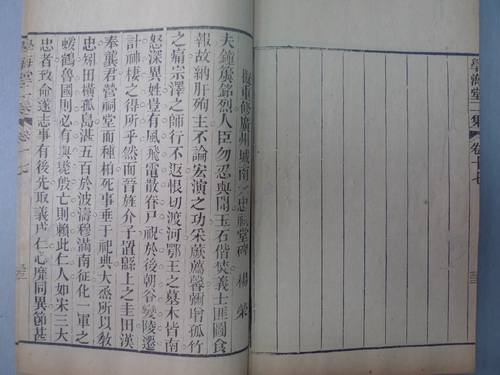 學海堂二集 卷十七
擬重修廣州城南三忠祠堂碑 楊榮
夫鐘簴銘烈人臣勿忍與聞玉石偕焚義士匪圖食
報故納肝殉主不論宏演之功采蕨薦馨孤竹
之痛宗澤之師行不返恨切渡河鄂王之墓木皆南
怒深異姓豈有風飛電散眷戸祝於後朝谷變陵遷
計神棲之得所乎然而晉旌介子置縣上之圭田漢
奉龔君營祠堂而種柏死事垂于祀典大烝所以教
忠矧田橫孤島湛五百於波濤穆滿南征化一軍之
蝯鶴魯國則必有與斃殷亡則賴此仁人如宋三大
忠者致命遂志事有後先取義成仁心靡同異節甚
學海堂二集 卷十七